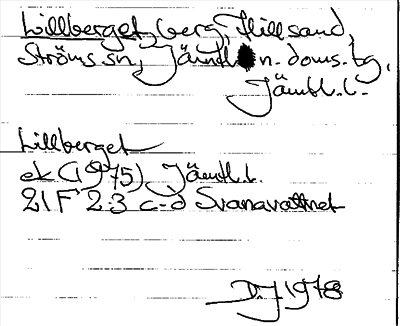 Lillberget, berg, Hillsand,
Ströms sn, Jämtl. n. doms. tg,
Jämtl. l.
Lillberget
ek (1975) Jämtl. l.
21 F 2-3 c-d Svanavattnet
D.J 1978